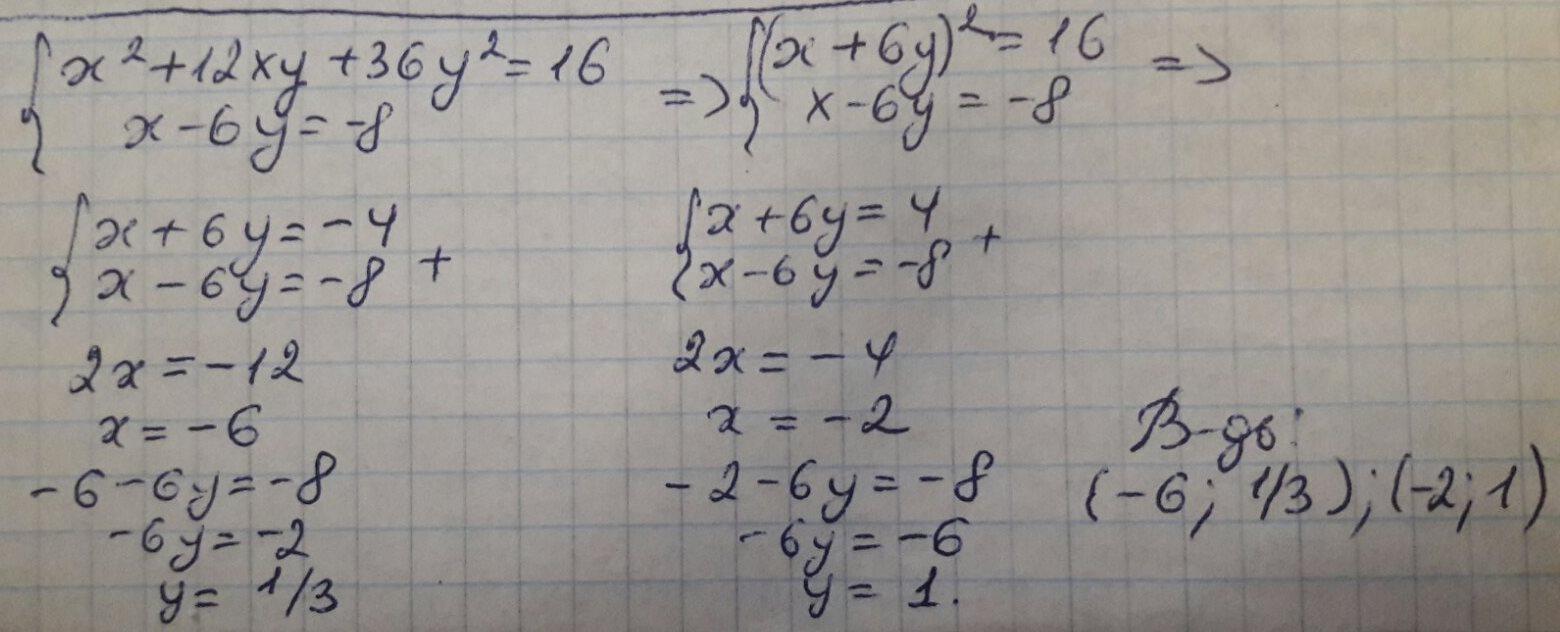 {x²+12xy+36y²=16 => {(x+6y)²=16 =>
x-6y=-8 x-6y=-8
{x+6y=-4 +
x-6y=-8
2x=-12
x=-6
-6-6y=-8
-6y=-2
y=1/3
{x+6y=4 +
x-6y=-8
2x=-4
x=-2
-2-6y=-8
-6y=-6
y=1.
В-дь:
(-6; 1/3);(-2;1)